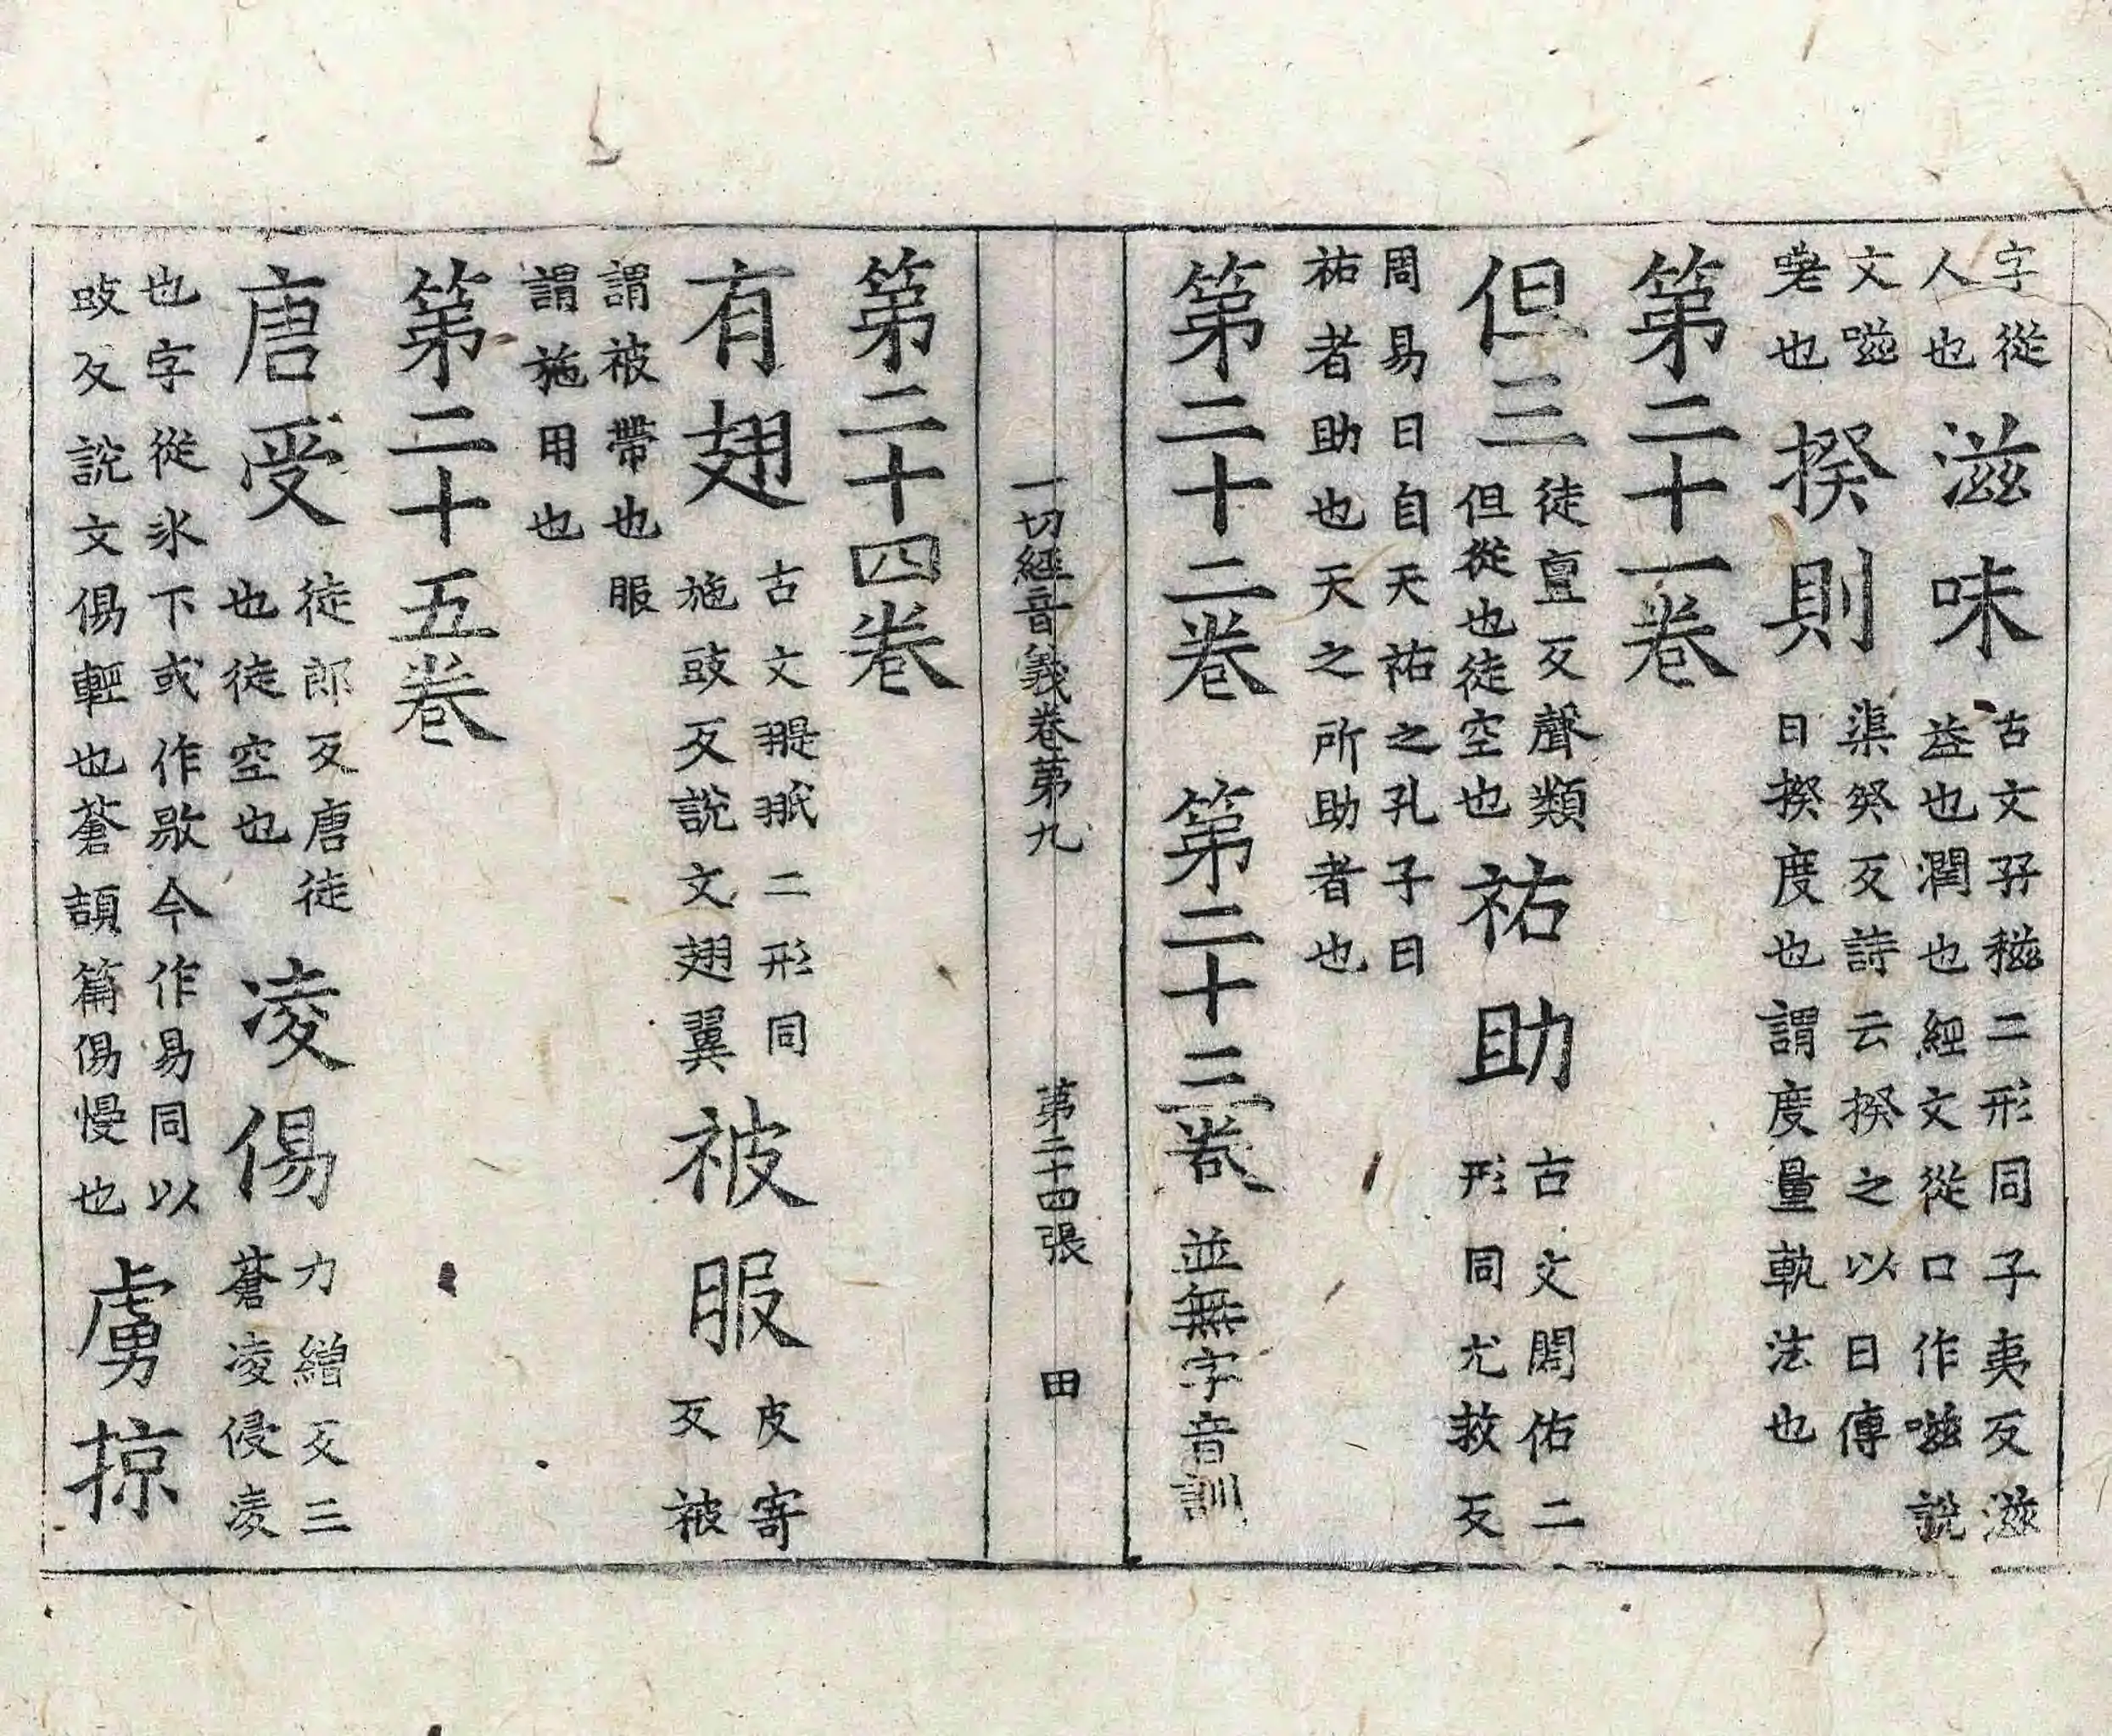 字從
人也
滋味
古文孖稵二形同子夷反滋
益也潤也經文從口作嗞說
文嗞
嗟也
揆則
渠癸反詩云揆之以日傳
曰揆度也謂度量軌法也
第二十一卷
但三
徒亶反聲類
但從也徒空也
祐助
古文閎佑二
形同尤救反
周易曰自天祐之孔子曰
祐者助也天之所助者也
第二十二卷
第二十三卷
並無字音訓
一切經音義卷第九
第二十四張
田
第二十四卷
有翅
古文翨𦐊二形同
施豉反說文翅翼
被服
皮寄
反被
謂被帶也服
謂施用也
第二十五卷
唐受
徒郎反唐徒
也徒空也
凌傷
力繒反三
蒼凌侵凌
也字從氷下或作敡今作易同以
豉反說文傷輕也蒼頡篇傷慢也
虜掠